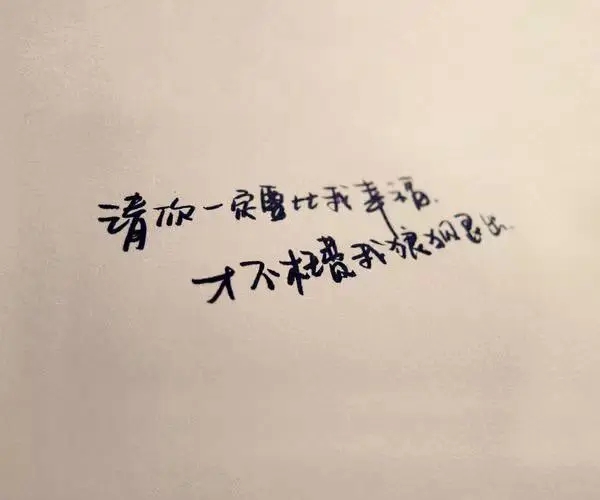 请你一定要比我幸福.
才不枉费我狼狈退出